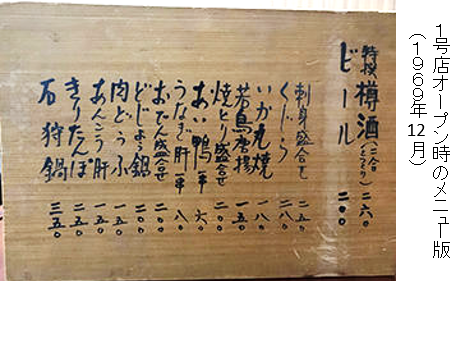 1号店オープン時のメニュー版
(1969年12月)
特撰 樽酒(二合とっくり) 二六〇
ビール 二〇〇
刺身盛合せ 二五〇
くじら 二八〇
いか丸焼 一八〇
若鳥唐揚 一五〇
焼とり盛合せ 二〇〇
あい鴨一串 六〇
うなぎ肝一串 八〇
おでん盛合せ 二〇〇
どじょう鍋 二〇〇
肉どうふ 一五〇
あんこう肝 一五〇
きりたんぽ 二五〇
石狩鍋 三五〇